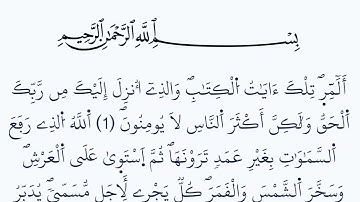 بِسْمِ اللَّهِ الرَّحْمَٰنِ الرَّحِيمِ
أَلَٓمِّٓرۖ تِلْكَ ءَايَٰتُ اُ۬لْكِتَٰبِۖ وَالذِےٓ أُنزِلَ إِلَيْكَ مِن رَّبِّكَ
اَ۬لْحَقُّ وَلَٰكِنَّ أَكْثَرَ اَ۬لنَّاسِ لَا يُومِنُونَۖ (1) اَ۬للَّهُ اُ۬لذِے رَفَعَ
اَ۬لسَّمَٰوَٰتِ بِغَيْرِ عَمَدٖ تَرَوْنَهَاۖ ثُمَّ اَ۪سْتَوَىٰ عَلَى اَ۬لْعَرْشِۖ
وَسَخَّرَ اَ۬لشَّمْسَ وَالْقَمَرَۖ كُلّٞ يَجْرِے لِأَجَلٖ مُّسَمّىٗۖ يُدَبِّرُ